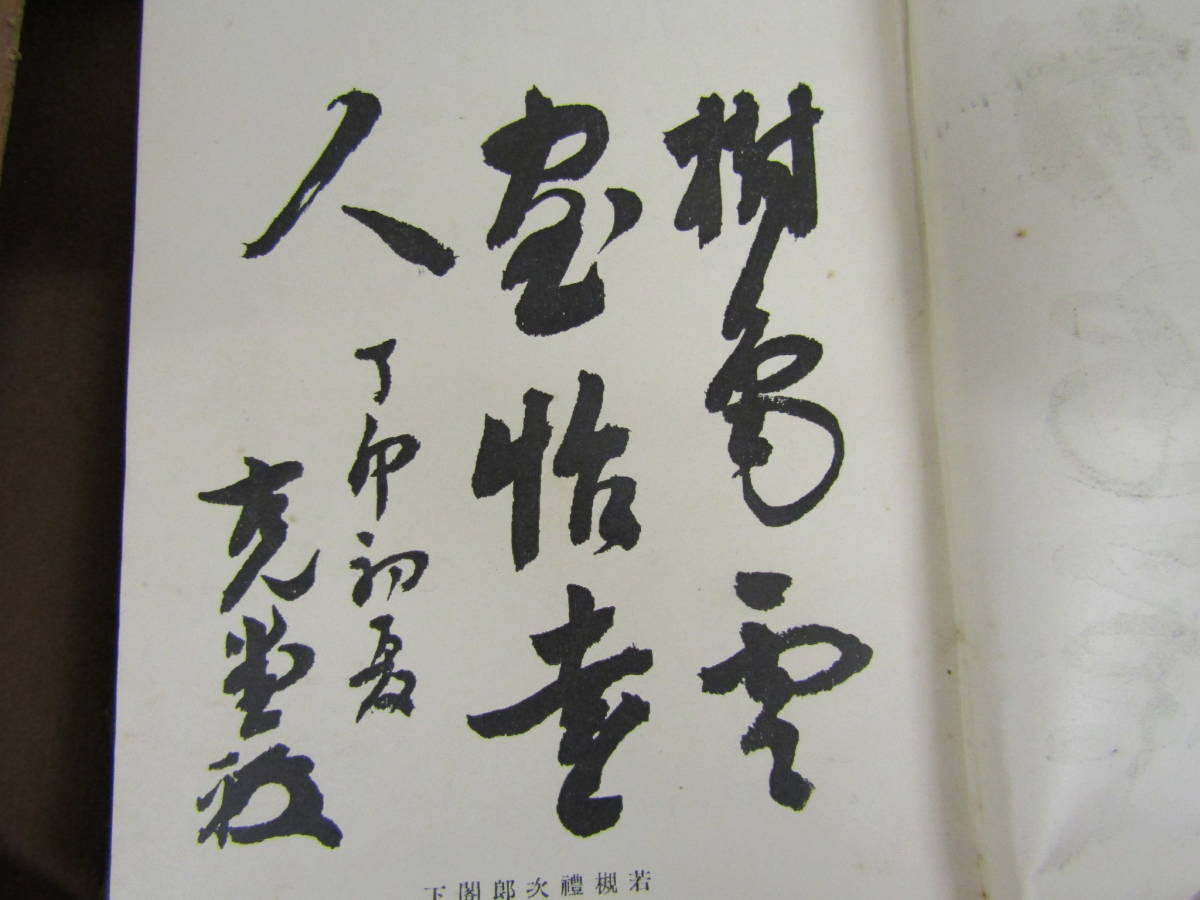 樹色雲
怡
人
丁卯初夏
克堂
若槻禮次郎閣下